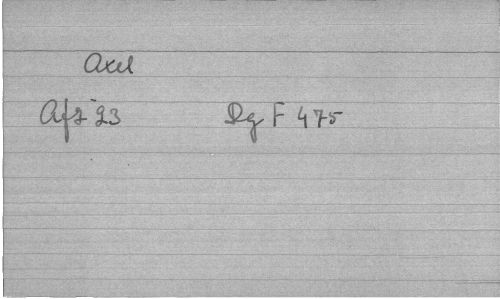 Axel
Afz 23 Dg F 475